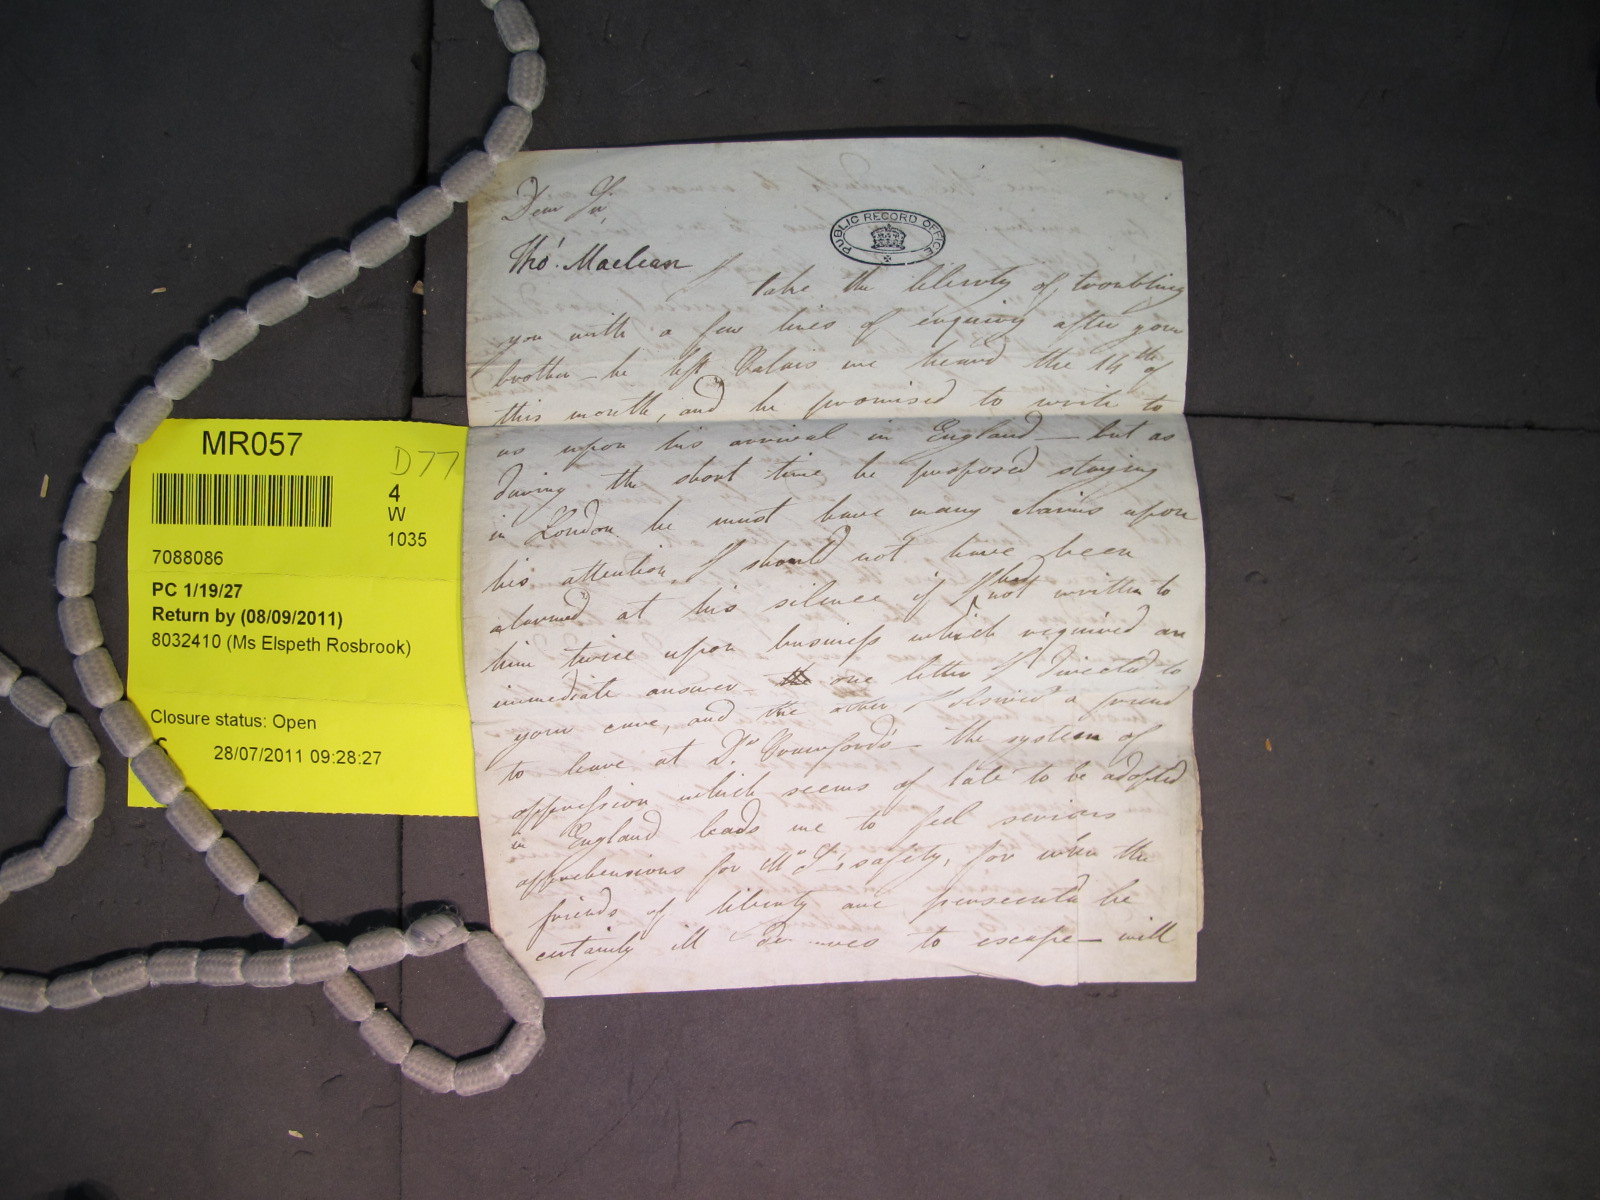 MR057
D77
4
W
1035
7088086
PC 1/19/27
Return by (08/09/2011)
8032410 (Ms Elspeth Rosbrook)
Closure status: Open
28/07/2011 09:28:27
PUBLIC RECORD OFFICE
Dear Sir,
Thos. Maclean
I take the liberty of troubling
you with a few lines of enquiry after your
brother – he left Calais we heard the 14th of
this month, and he promised to write to
us upon his arrival in England – but as
during the short time he proposed staying
in London he must have many claims upon
his attention, I should not have been
alarmed at his silence if I had not written to
him twice upon business which required an
immediate answer – one letter I directed to
your care, and the other I desired a friend
to leave at Dr. Crawford's – the system of
oppression which seems of late to be adopted
in England leads me to feel serious
apprehensions for Mr S–'s safety, for when the
friends of liberty are persecuted he
certainly ill deserves to escape – will